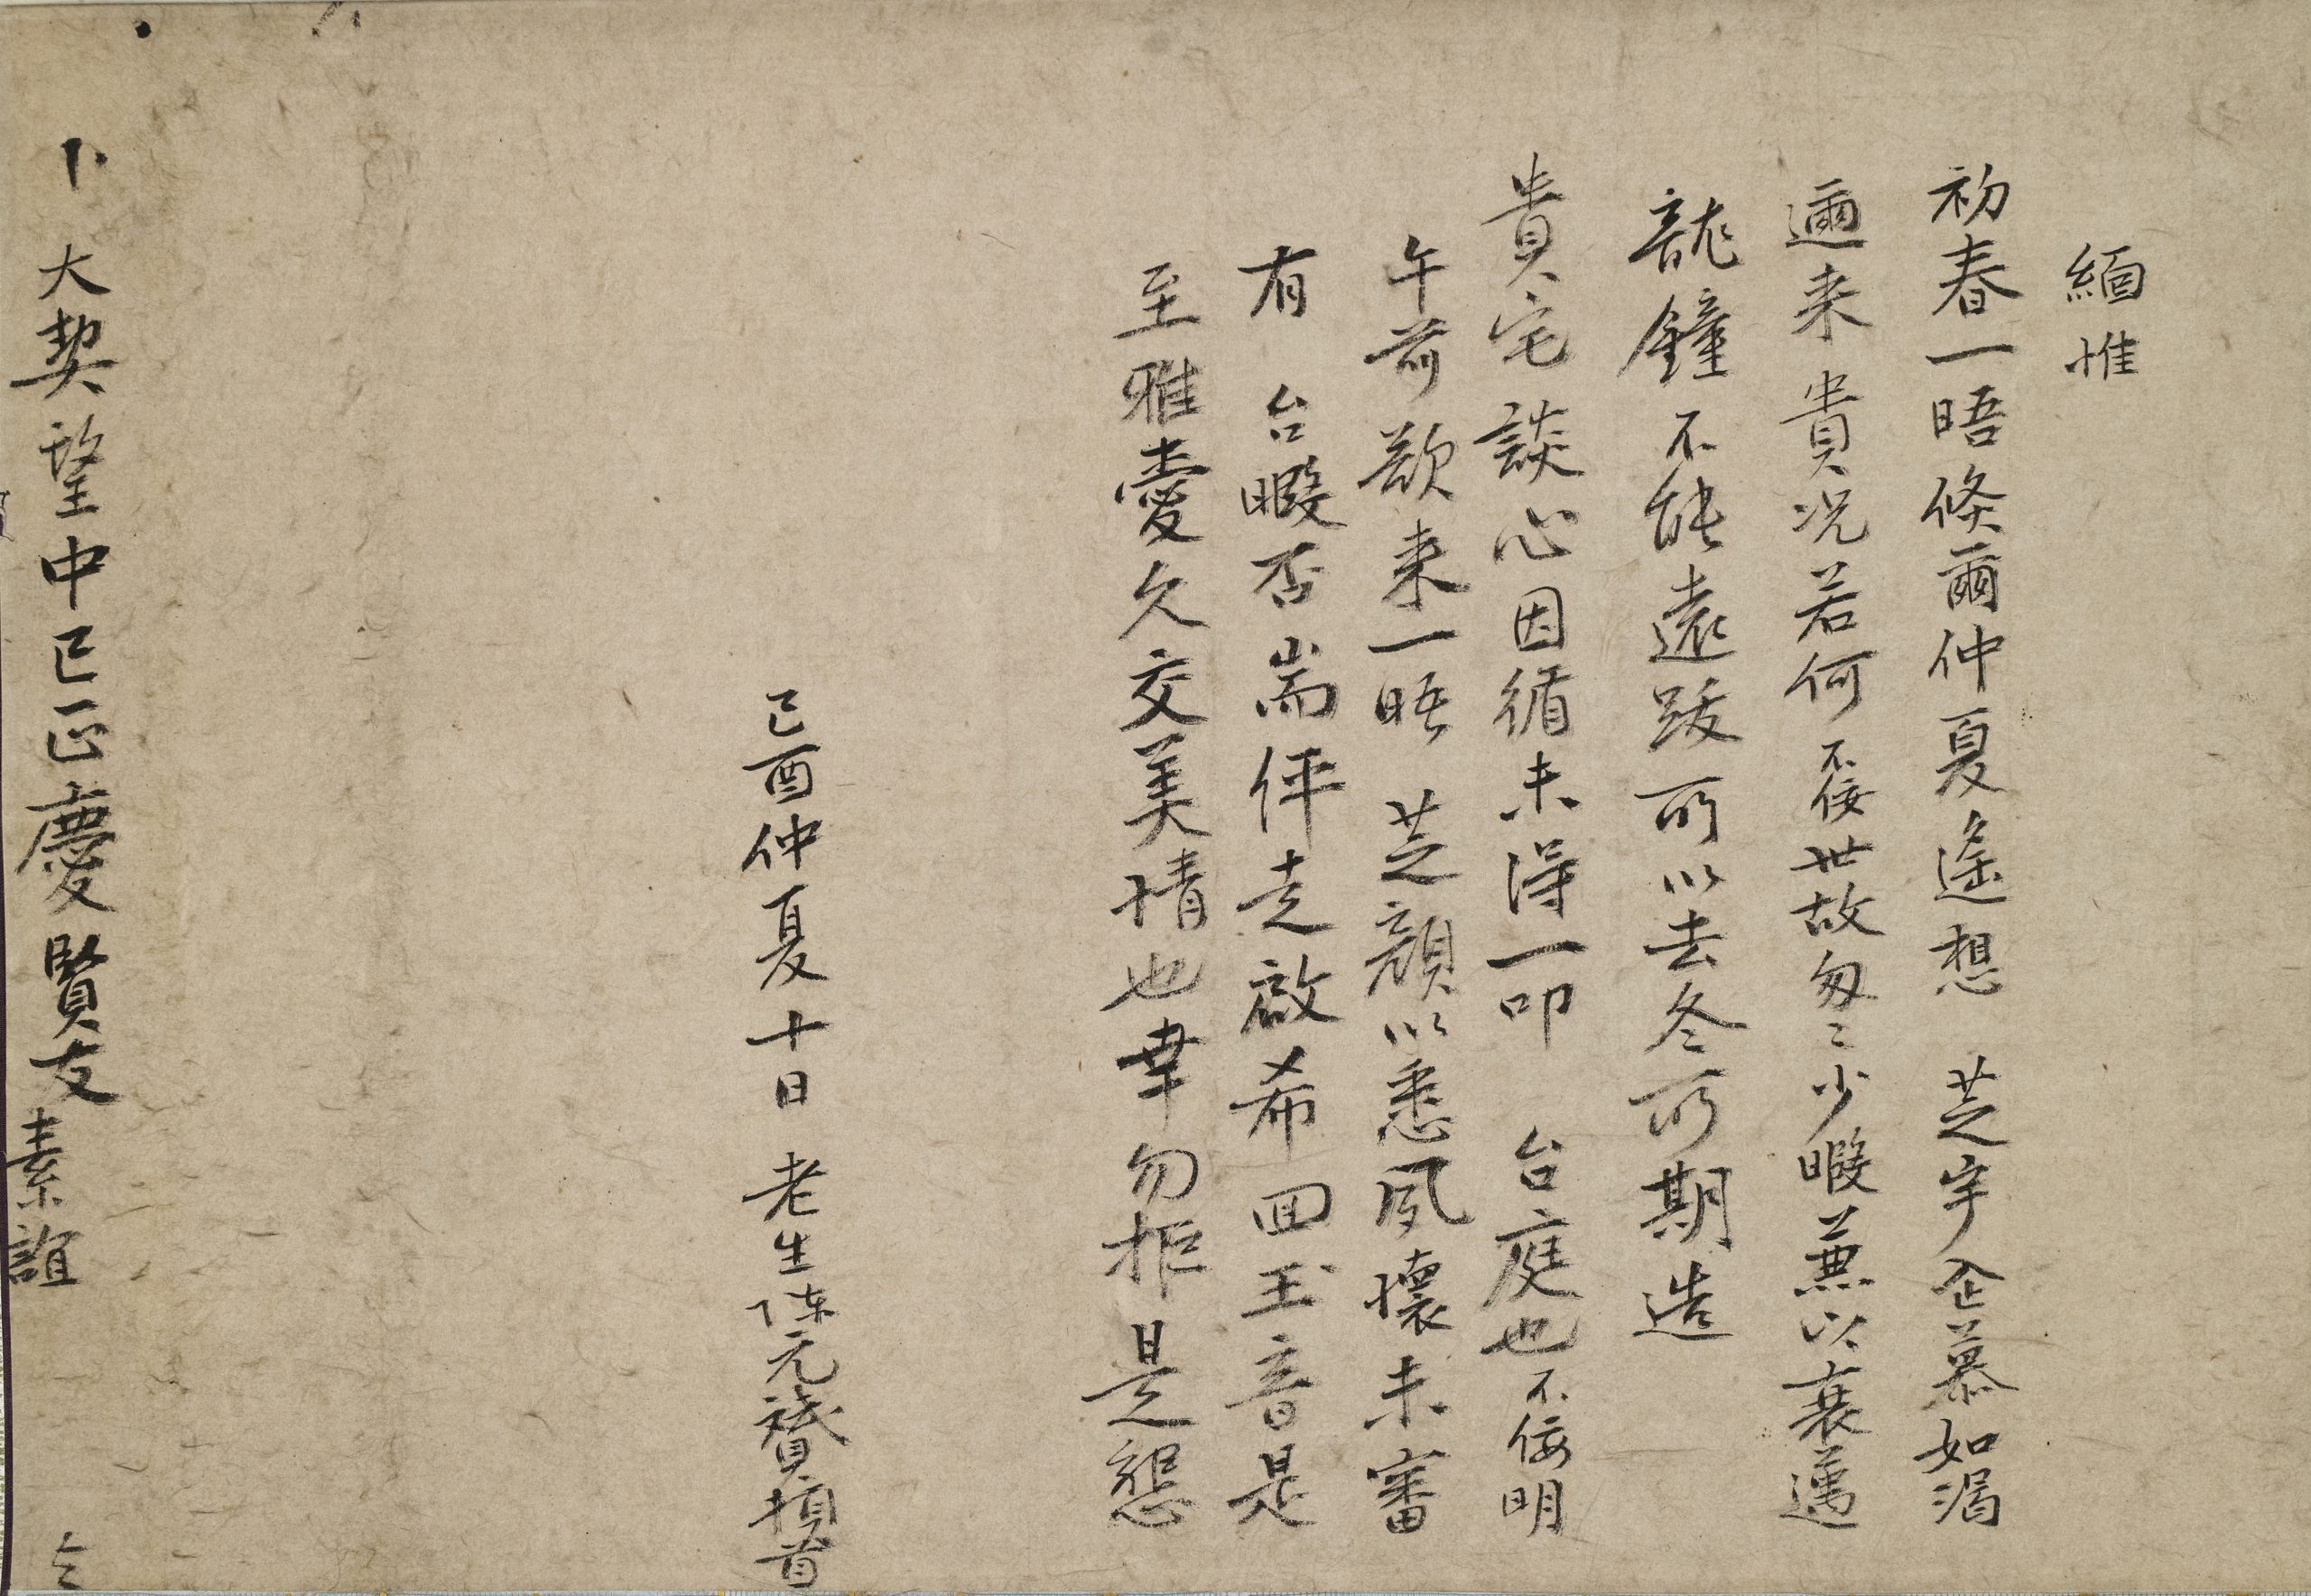 緬惟
初春一晤倐爾仲夏遙想 芝宇企慕如渴
邇来貴況若何不佞世故匆〻少暇兼以衰邁
龍鐘不能遠跋所以去冬所期造
貴宅談心因循未得一叩 台庭也不佞明
午前欲来一晤 芝顏以悉夙懷未審
有 台暇否耑伻走啟希回玉音是
至雅愛久交美情也幸勿拒是懇
己酉仲夏十日老生陳元贇頓首
卜 大契望中已正慶賢友素誼